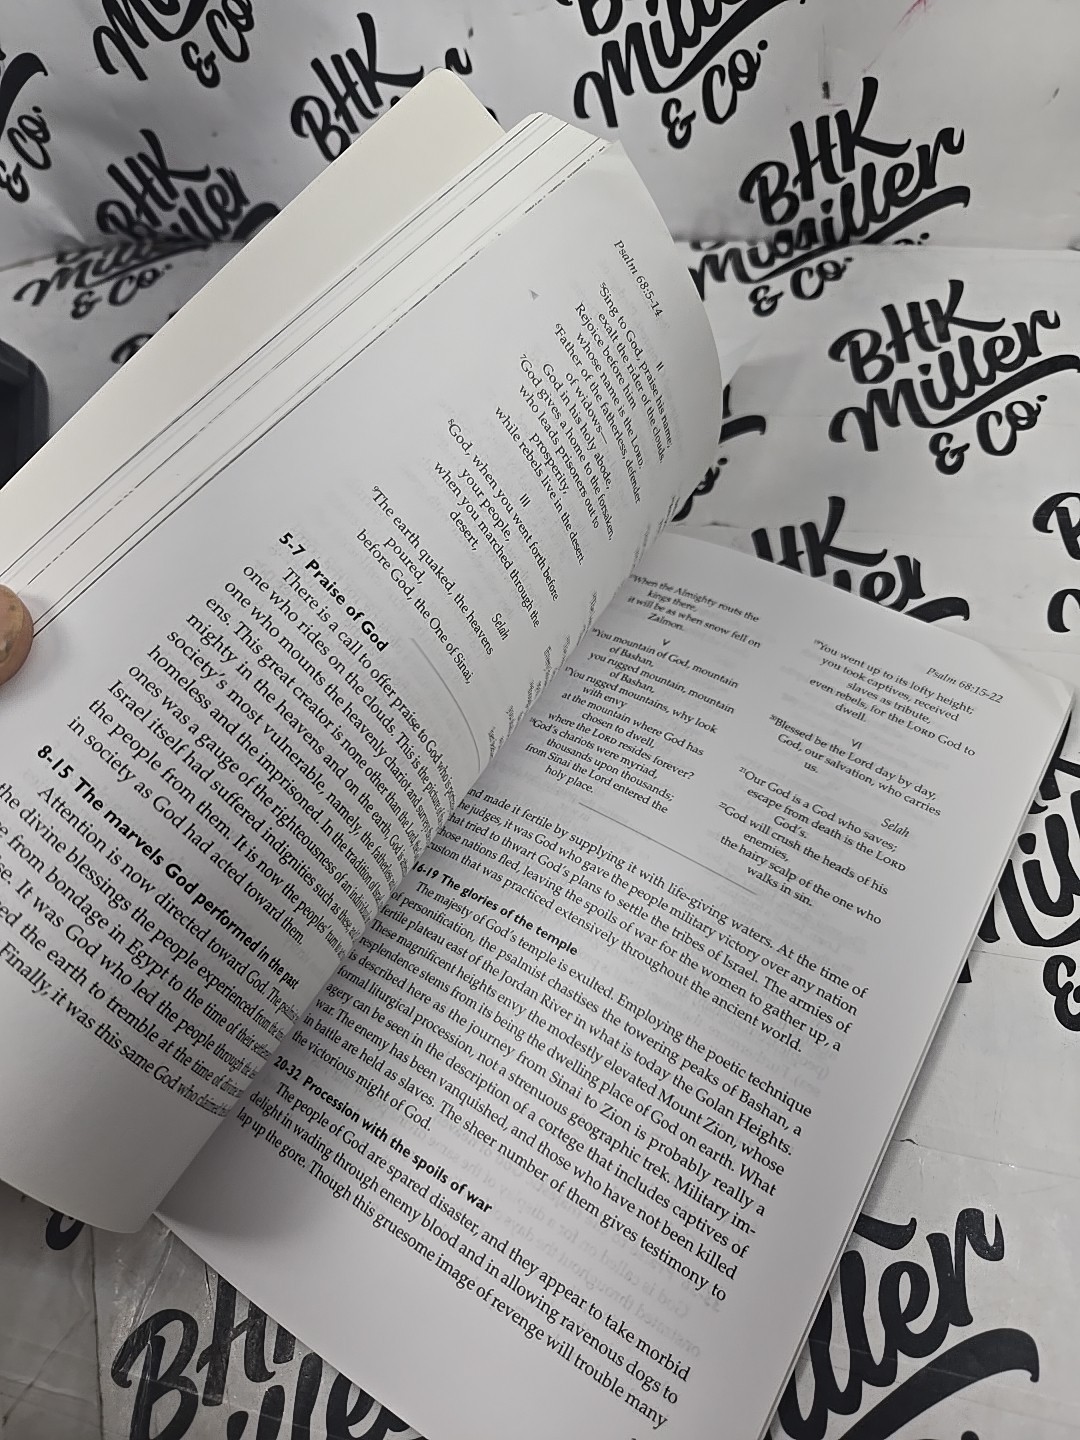 Psalm 68:5-14
II
⁵Sing to God, praise his name,
exalt the rider of the clouds.
Rejoice before him
whose name is the LORD.
⁶Father of the fatherless, defender
of widows—
God in his holy abode,
⁷God gives a home to the forsaken,
who leads prisoners out to
prosperity,
while rebels live in the desert.
III
⁸God, when you went forth before
your people,
when you marched through the
desert,
Selah
⁹The earth quaked, the heavens
poured,
before God, the One of Sinai,
5-7 Praise of God
There is a call to offer praise to God
one who rides on the clouds. This is the picture
one who mounts the heavenly chariot and
ens. This great creator is none other than the Lord,
mighty in the heavens and on the earth, God is
society's most vulnerable, namely, the fatherless
homeless and the imprisoned. In the tradition of
ones was a gauge of the righteousness of an individual
Israel itself had suffered indignities such as these,
the people from them. It is now the peoples' turn
in society as God had acted toward them.
8-15 The marvels God performed in the past
Attention is now directed toward God. The
the divine blessings the people experienced from the
from bondage in Egypt to the time of their
It was God who led the people through the
the earth to tremble at the time of
Finally, it was this same God who claimed
When the Almighty routs the
kings there,
it will be as when snow fell on
Zalmon.
V
You mountain of God, mountain
of Bashan,
you rugged mountain, mountain
of Bashan,
You rugged mountains, why look
with envy
at the mountain where God has
chosen to dwell,
where the LORD resides forever?
God's chariots were myriad,
thousands upon thousands;
from Sinai the Lord entered the
holy place.
Psalm 68:15-22
¹⁹You went up to its lofty height;
you took captives, received
slaves as tribute,
even rebels, for the LORD God to
dwell.
VI
²⁰Blessed be the Lord day by day,
God, our salvation, who carries
us.
Selah
²¹Our God is a God who saves;
escape from death is the LORD
God's.
²²God will crush the heads of his
enemies,
the hairy scalp of the one who
walks in sin.
and made it fertile by supplying it with life-giving waters. At the time of
the judges, it was God who gave the people military victory over any nation
that tried to thwart God's plans to settle the tribes of Israel. The armies of
those nations fled, leaving the spoils of war for the women to gather up, a
custom that was practiced extensively throughout the ancient world.
16-19 The glories of the temple
The majesty of God's temple is exulted. Employing the poetic technique
of personification, the psalmist chastises the towering peaks of Bashan, a
fertile plateau east of the Jordan River in what is today the Golan Heights.
These magnificent heights envy the modestly elevated Mount Zion, whose
resplendence stems from its being the dwelling place of God on earth. What
is described here as the journey from Sinai to Zion is probably really a
formal liturgical procession, not a strenuous geographic trek. Military im-
agery can be seen in the description of a cortege that includes captives of
war. The enemy has been vanquished, and those who have not been killed
in battle are held as slaves. The sheer number of them gives testimony to
the victorious might of God.
20-32 Procession with the spoils of war
The people of God are spared disaster, and they appear to take morbid
delight in wading through enemy blood and in allowing ravenous dogs to
lap up the gore. Though this gruesome image of revenge will trouble many
BHK
Miller
& Co.